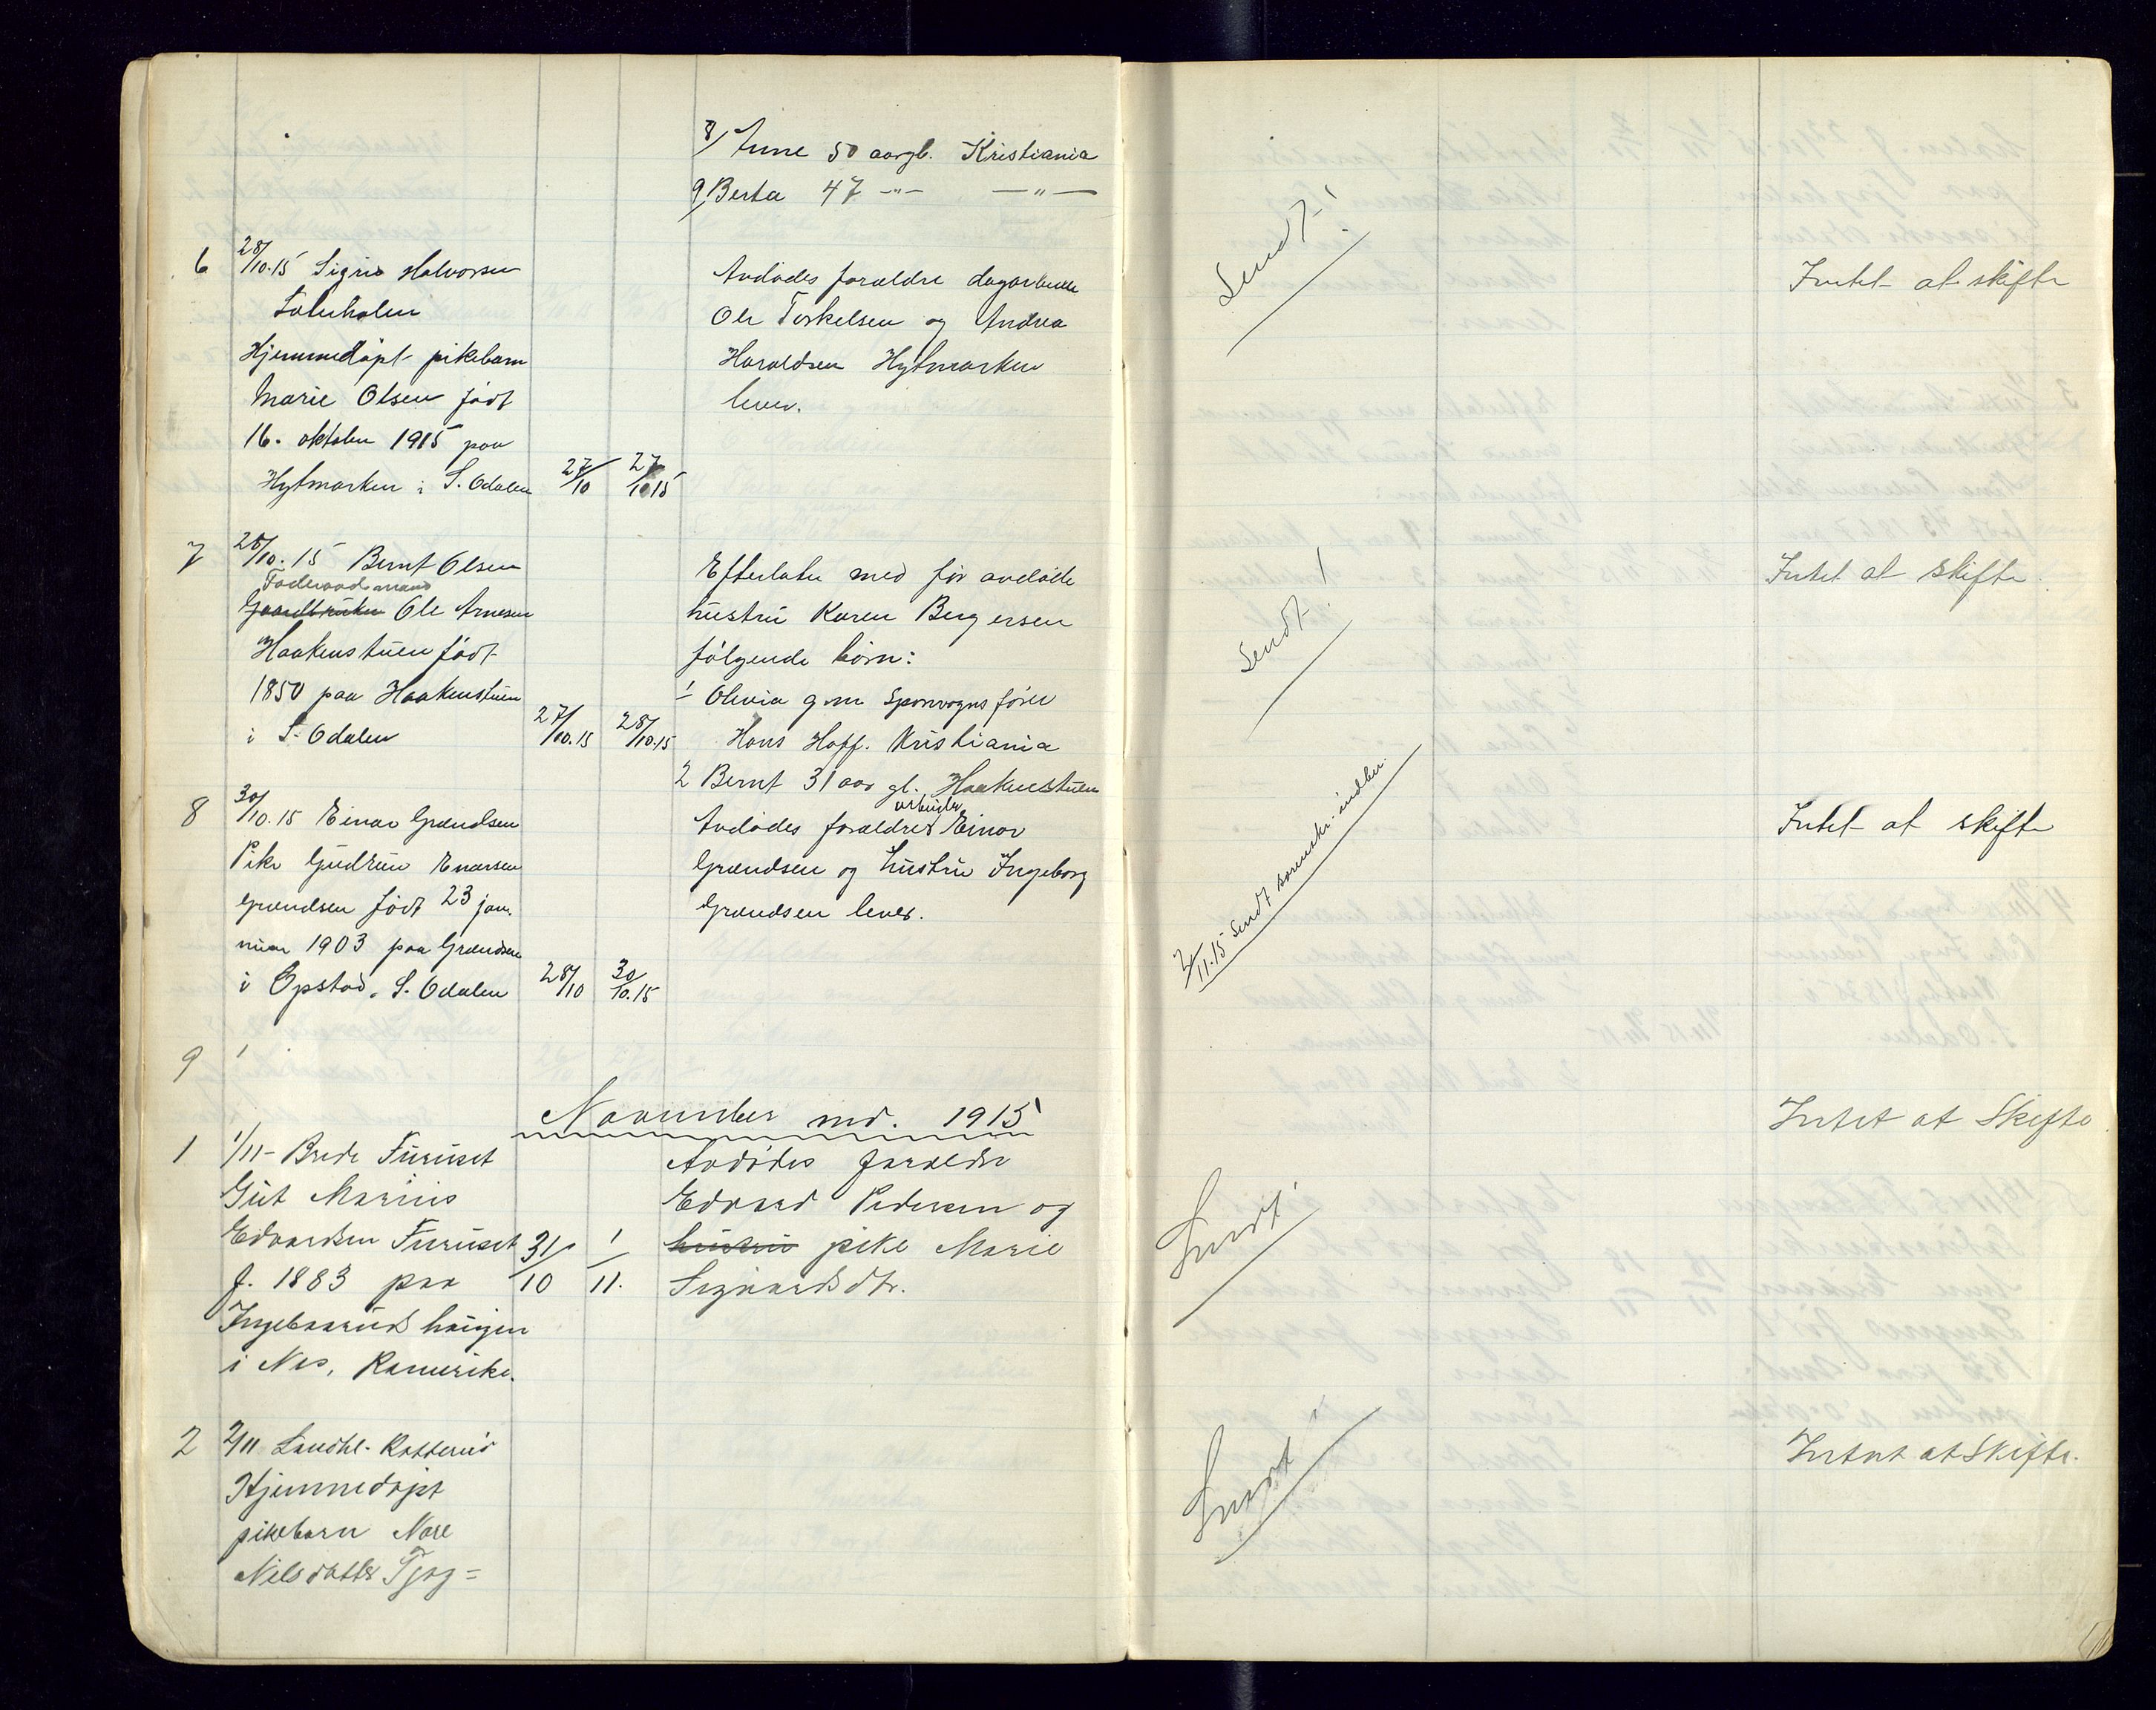 8/ Anne 50 aar gl. Kristiania
9/ Berta 47 -"- -"-
6 28/10.15 Sigrid Halvorsen
Hjemmedöpt pikebarn
Marie Olsen født
16. oktober 1915 paa
Hytmarken i S. Odalen 27/10 27/10 15
Avdødes forældre dagarbeider
Ole Torkelsen og Andrea
Haraldsen Hytmarken
lever.
Sendt!
Intet at skifte
7 28/10.15 Bernt Olsen
Føderaadsmand
Gaardbruker Ole Arnesen
Haakenstuen født
1850 paa Haakenstuen
i S. Odalen 27/10.15 28/10.15
Efterlater med før avdøde
hustru Karen Bergersen
følgende børn:
1 Olivia g.m. Sporvognsfører
Hans Hoff. Kristiania
2 Bernt 31 aar gl. Haakenstuen
Sendt!
Intet at skifte.
8 30/10.15 Einar Grændsen
Pike Gudrun Enarsen
Grændsen født 23 jan-
nuar 1903 paa Grændsen
i Opstad, S. Odalen 28/10 30/10.15
Avdødes forældrer arbeider Einar
Grændsen og hustru Ingeborg
Grændsen lever.
2/11.15 Sendt sorenskr. indber.
Intet at skifte
9
November md. 1915
1 1/11 - Brede Furuset
Gut Marius
Edvardsen Furuset 31/10 1/11.
f. 1883 paa
Ingebaaruds haugen
i Nes, Romerike.
Avdødes forældre
Edvard Pedersen og
hustru pike Marie
Sigvardsdtr.
Sendt!
Intet at Skifte.
2 2/11 Landhl. Ratterud
Hjemmedøpt
pikebarn
Nilsdatter Tjog=
Sendt!
Intet at Skifte.